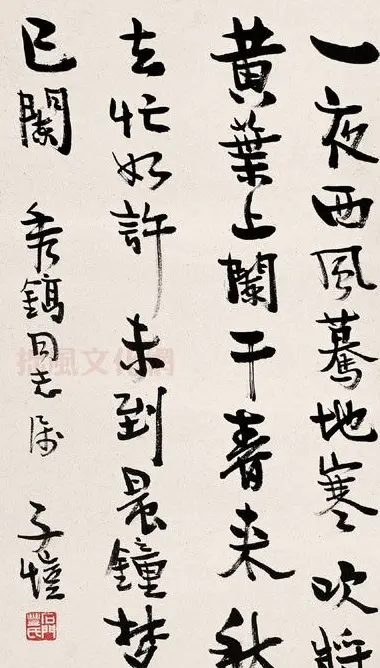 一夜西風驀地寒吹將
黃葉上闌干春來秋
去忙如許未到晨鐘夢
已闌 秀鎬同志屬 子愷